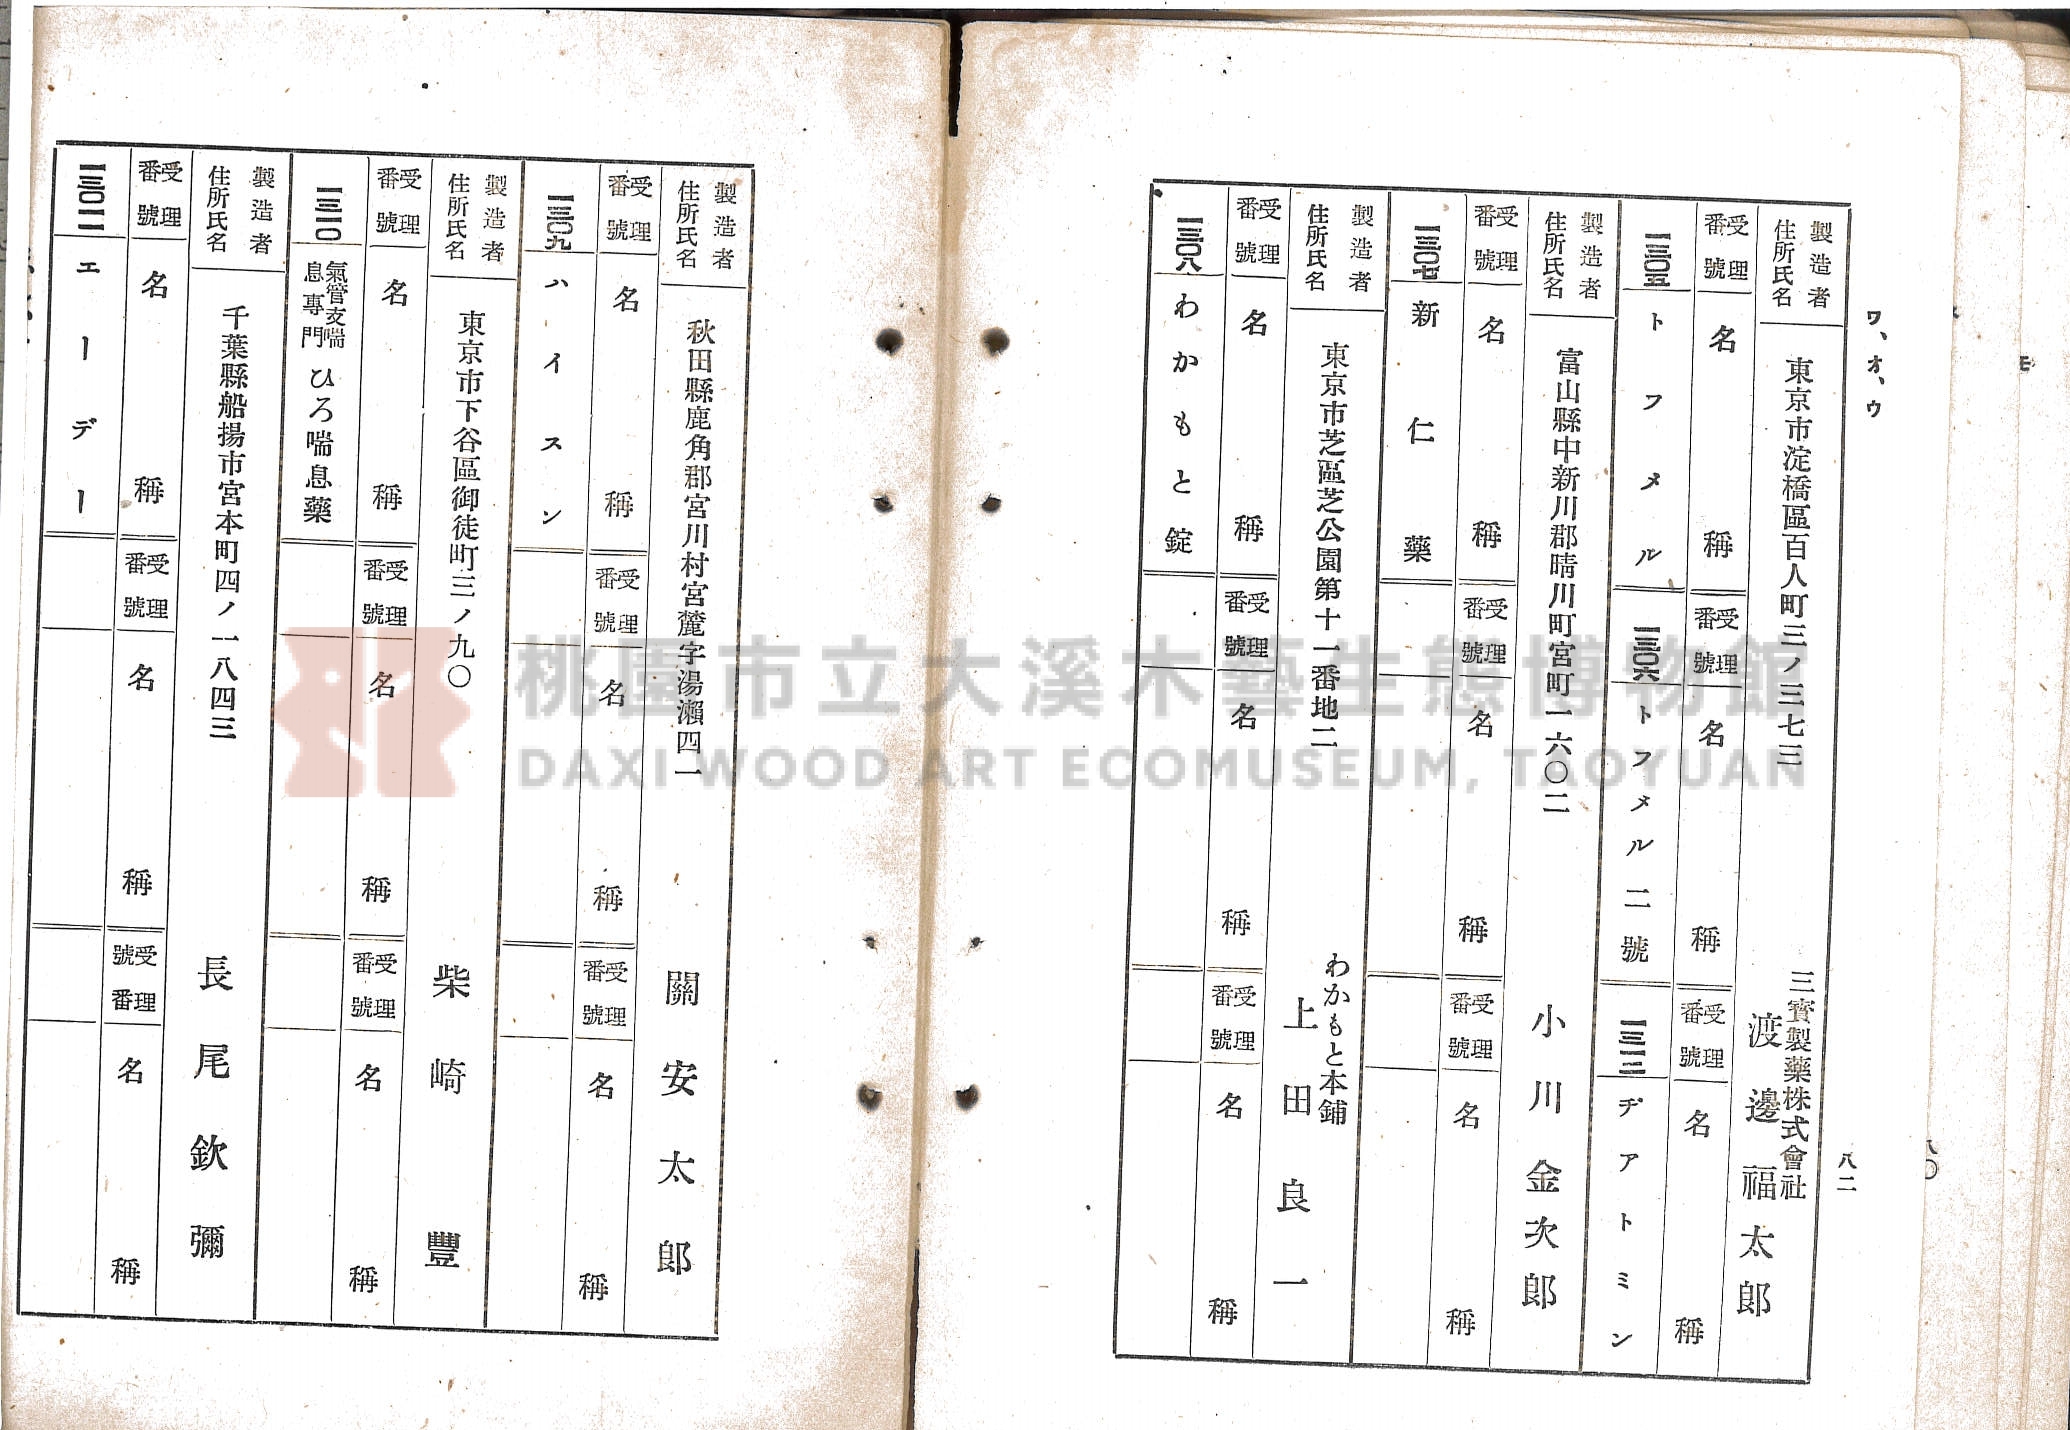 ワ、オ、ウ
八二
製造者
住所氏名
東京市淀橋區百人町三ノ三七三
三寳製藥株式會社
渡邊福太郎
受理番號
名稱
受理番號
名稱
受理番號
名稱
一三〇五
トフメル
一三〇六
トフメル二號
一三一二
ヂアトミン
製造者
住所氏名
富山縣中新川郡晴川町宮町一六〇二
小川金次郎
受理番號
名稱
受理番號
名稱
受理番號
名稱
一三〇七
新仁藥
製造者
住所氏名
東京市芝區芝公園第十一番地二
わかもと本鋪
上田良一
受理番號
名稱
受理番號
名稱
受理番號
名稱
一三〇八
わかもと錠
製造者
住所氏名
秋田縣鹿角郡宮川村宮麓字湯瀨四一
關安太郎
受理番號
名稱
受理番號
名稱
受理番號
名稱
一三〇九
ハイスン
製造者
住所氏名
東京市下谷區御徒町三ノ九〇
柴崎豐
受理番號
名稱
受理番號
名稱
受理番號
名稱
一三一〇
氣管支喘息專門 ひろ喘息藥
製造者
住所氏名
千葉縣船揚市宮本町四ノ一八四三
長尾欽彌
受理番號
名稱
受理番號
名稱
受理號番
名稱
エーデー
桃園市立大溪木藝生態博物館
DAXI WOOD ART ECOMUSEUM, TAOYUAN